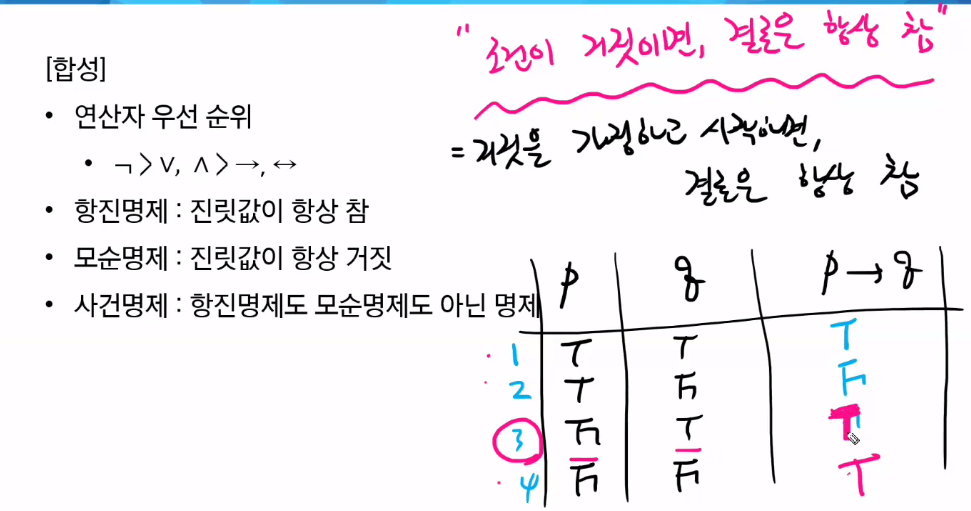 [합성]
• 연산자 우선 순위
• ¬ > ∨, ∧ > →, ↔
• 항진명제 : 진릿값이 항상 참
• 모순명제 : 진릿값이 항상 거짓
• 사건명제 : 항진명제도 모순명제도 아닌 명제
"조건이 거짓이면, 결론은 항상 참"
= 거짓을 가정하고 시작하면,
결론은 항상 참
p q p → q
1 T T T
2 T F F
3 F T T
4 F F T